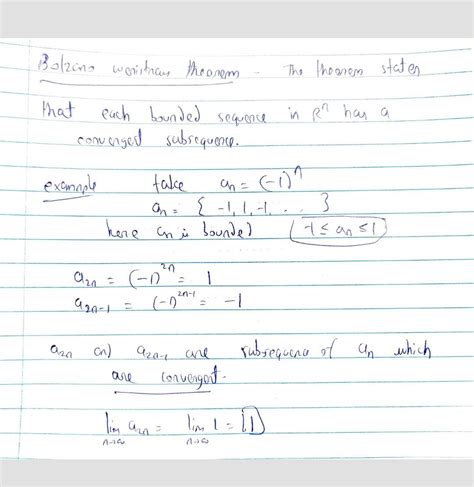 Bolzano weristrass theorem - The theorem states
that each bounded sequence in Rⁿ has a
converged subsequence.
example take aₙ = (-1)ⁿ
aₙ = { -1, 1, -1, . . . }
here aₙ is bounded (-1 ≤ aₙ ≤ 1)
a₂ₙ = (-1)²ⁿ = 1
a₂ₙ₋₁ = (-1)²ⁿ⁻¹ = -1
a₂ₙ and a₂ₙ₋₁ are subsequence of aₙ which
are convergent.
lim a₂ₙ = lim 1 = 1
n→∞ n→∞